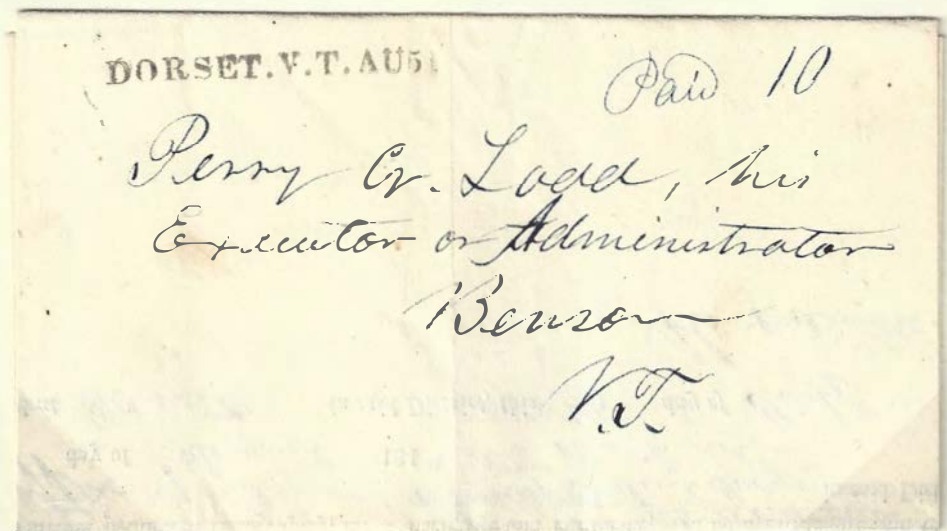 DORSET.V.T. AU5
Paid 10
Perry G. Ladd, his
Executor or Administrator
Benson
V.T.